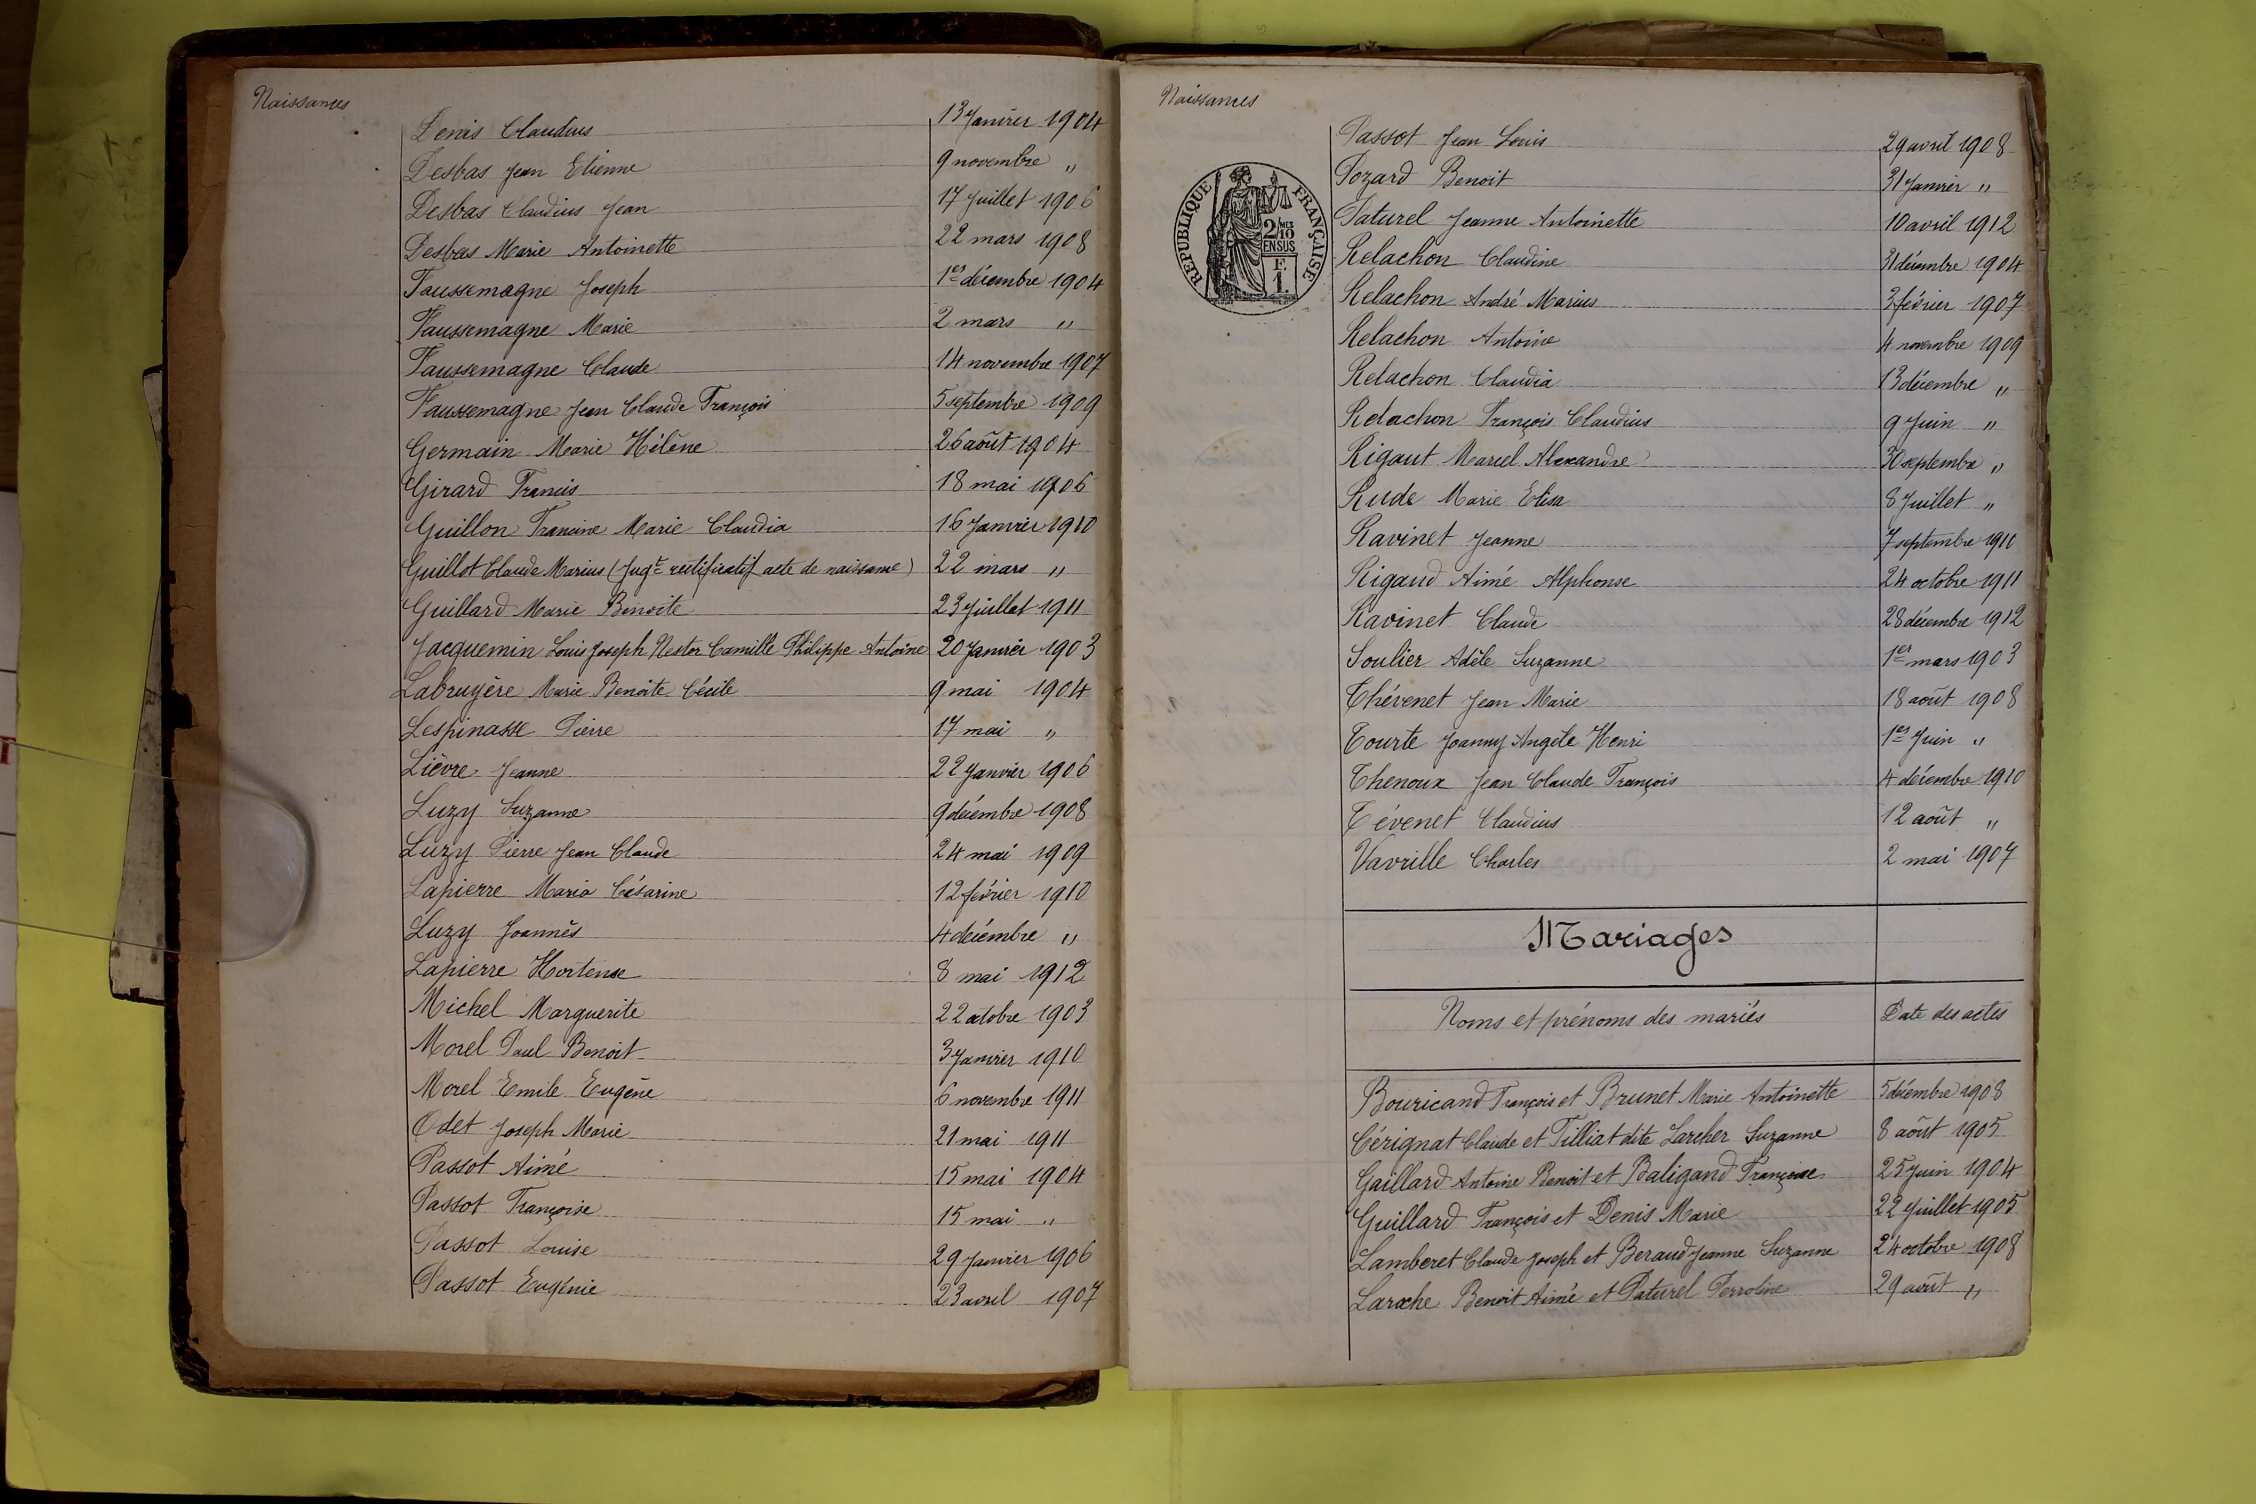 Naissances
Denis Claudius 13 Janvier 1904
Desbas Jean Etienne 9 novembre "
Desbas Claudius Jean 17 Juillet 1906
Desbas Marie Antoinette 22 mars 1908
Faussemagne Joseph 1er décembre 1904
Faussemagne Marie 2 mars "
Faussemagne Claude 14 novembre 1907
Faussemagne Jean Claude François 5 septembre 1909
Germain Marie Hélène 26 août 1904
Girard Francis 18 mai 1906
Guillon Francine Marie Claudia 16 Janvier 1910
Guillot Claude Marius (Jugt rectificatif acte de naissance) 22 mars "
Guillard Marie Benoite 23 Juillet 1911
Jacquemin Louis Joseph Nestor Camille Philippe Antoine 20 Janvier 1903
Labruyère Marie Benoite Cécile 9 mai 1904
Lespinasse Pierre 17 mai "
Lièvre Jeanne 22 Janvier 1906
Luzy Suzanne 9 décembre 1908
Luzy Pierre Jean Claude 24 mai 1909
Lapierre Maria Césarine 12 février 1910
Luzy Joannès 4 décembre "
Lapierre Hortense 8 mai 1912
Michel Marguerite 22 octobre 1903
Morel Paul Benoit 3 Janvier 1910
Morel Emile Eugène 6 novembre 1911
Odet Joseph Marie 21 mai 1911
Passot Aimé 15 mai 1904
Passot Françoise 15 mai "
Passot Louise 29 Janvier 1906
Passot Eugénie 23 avril 1907
Naissances
REPUBLIQUE FRANÇAISE
2/10 MES
EN SUS
F.
1.
Passot Jean Louis 29 avril 1908
Pozard Benoit 31 Janvier "
Paturel Jeanne Antoinette 10 avril 1912
Relachon Claudine 31 décembre 1904
Relachon André Marius 3 février 1907
Relachon Antoine 4 novembre 1909
Relachon Claudia 13 décembre "
Relachon François Claudius 9 Juin "
Rigaut Marcel Alexandre 30 septembre "
Rude Marie Elisa 8 Juillet "
Ravinet Jeanne 7 septembre 1910
Rigaud Aimé Alphonse 24 octobre 1911
Ravinet Claude 28 décembre 1912
Soulier Adèle Suzanne 1er mars 1903
Thévenet Jean Marie 18 août 1908
Tourte Joanny Angèle Henri 1er Juin "
Thenoux Jean Claude François 4 décembre 1910
Tévenet Claudius 12 août "
Vavrille Charles 2 mai 1907
Mariages
Noms et prénoms des mariés Date des actes
Bouricand François et Brunet Marie Antoinette 5 décembre 1908
Cérignat Claude et Tilliat dite Larcher Suzanne 8 août 1905
Gaillard Antoine Benoit et Baligand Françoise 25 Juin 1904
Guillard François et Denis Marie 22 Juillet 1905
Lamberet Claude Joseph et Beraud Jeanne Suzanne 24 octobre 1908
Laroche Benoit Aimé et Paturel Perroline 29 août "